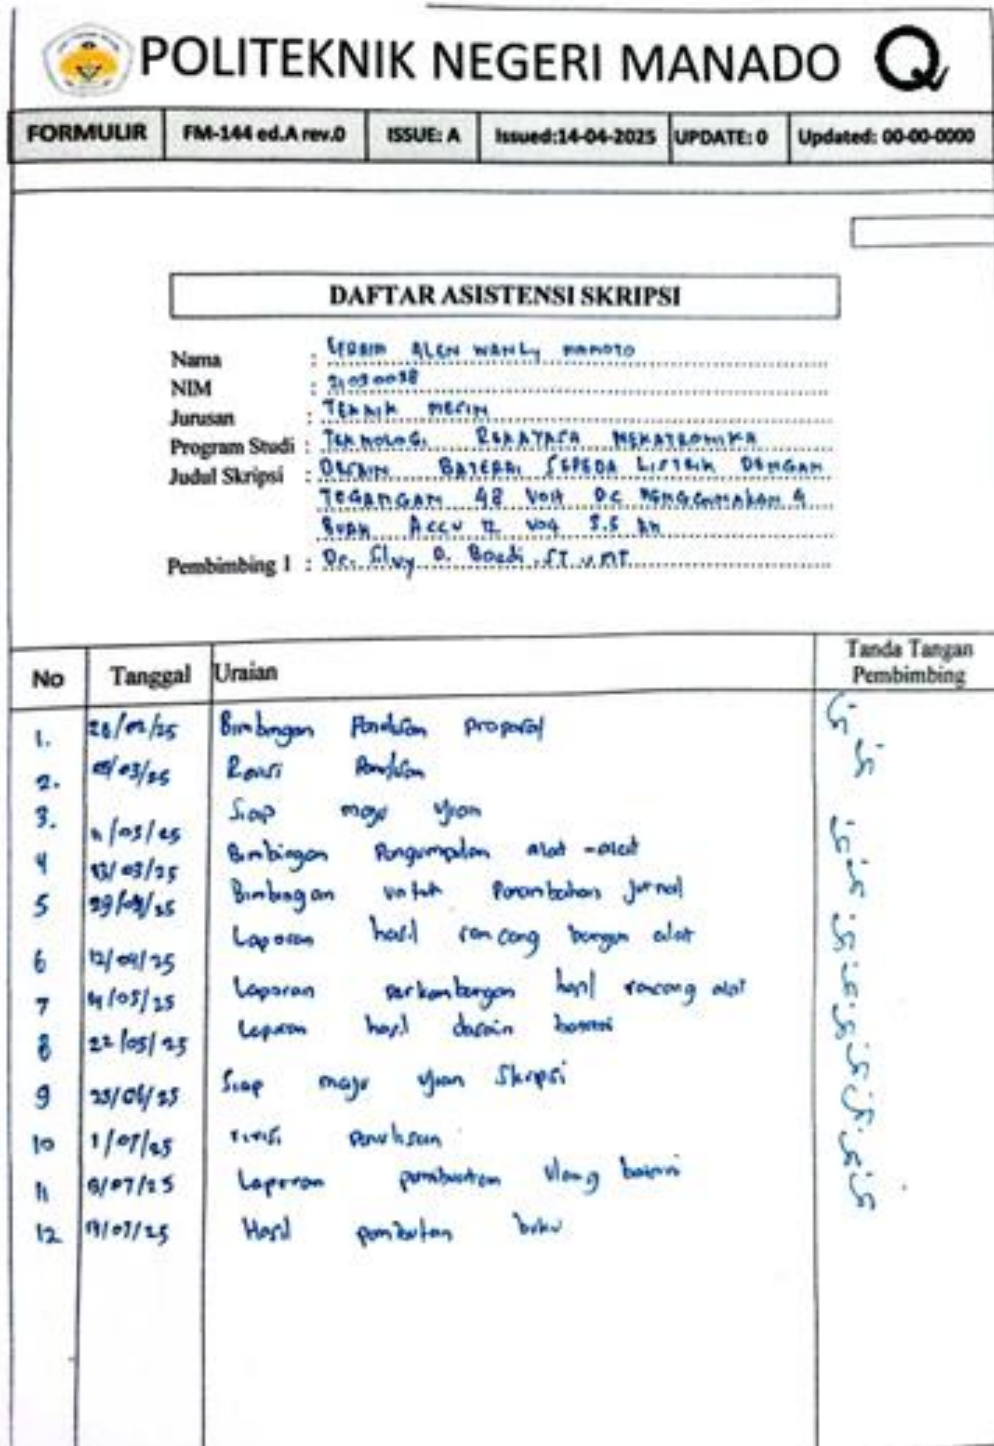 POLITEKNIK NEGERI MANADO
FORMULIR FM-144 ed.A rev.0 ISSUE: A Issued:14-04-2025 UPDATE: 0 Updated: 00-00-0000
DAFTAR ASISTENSI SKRIPSI
Nama : ALEN WANLY MAMOTO
NIM :
Jurusan : TEKNIK MESIN
Program Studi : TEKNOLOGI REKAYASA MEKATRONIKA
Judul Skripsi : DESAIN BATERAI SEPEDA LISTRIK DENGAN
TEGANGAN 48 VOLT DC MENGGUNAKAN 4
BUAH ACCU 12 5.5 Ah
Pembimbing 1 : Dr. Silvy D. Boedi, ST., MT
No Tanggal Uraian Tanda Tangan
Pembimbing
1. Bimbingan Penulisan proposal
2. Revisi Penulisan
3. 11/03/25 Siap maju ujian
4 13/03/25 Bimbingan Pengumpulan alat-alat
5 Bimbingan untuk Penambahan jurnal
6 12/04/25 Laporan hasil rancang bangun alat
7 Laporan perkembangan hasil rancang alat
8 22/05/25 Laporan hasil desain baterai
9 Siap maju ujian Skripsi
10 1/07/25 revisi penulisan
11 Laporan pembuatan ulang baterai
12 Hasil pembuatan buku